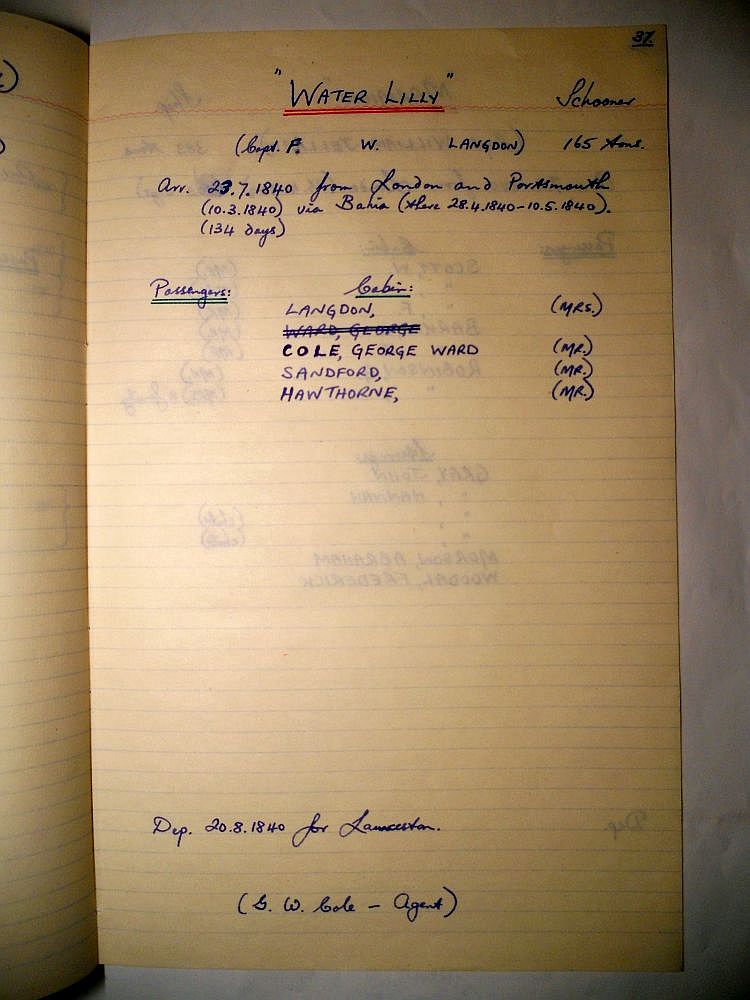 37.
"WATER LILLY" Schooner
(Capt. F. W. LANGDON) 165 tons.
Arr. 23.7.1840 from London and Portsmouth
(10.3.1840) via Bahia (there 28.4.1840-10.5.1840).
(134 days)
Passengers: Cabin:
LANGDON, (MRS.)
WARD, GEORGE
COLE, GEORGE WARD (MR.)
SANDFORD, (MR.)
HAWTHORNE, (MR.)
Dep. 20.8.1840 for Launceston.
(G. W. Cole - Agent)